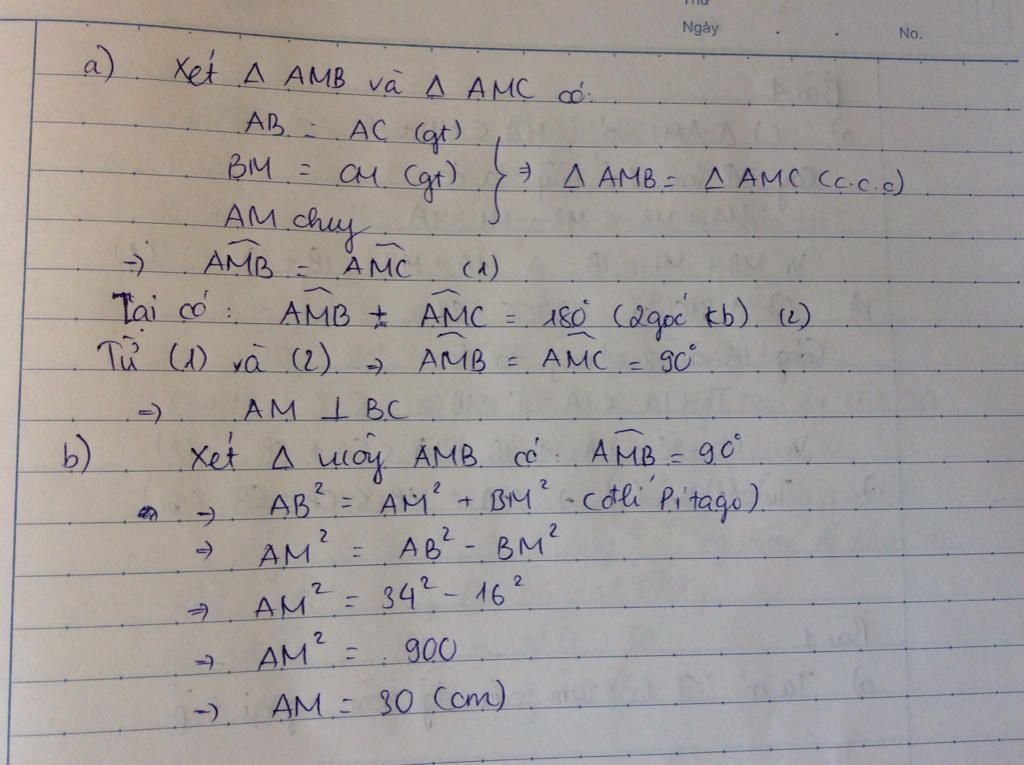 Thứ
Ngày . . No.
a) Xét Δ AMB và Δ AMC có:
AB = AC (gt)
BM = CM (gt) } ⇒ Δ AMB = Δ AMC (c.c.c)
AM chug
→ AMB = AMC (1)
Lại có: AMB + AMC = 180° (2 góc kb) (2)
Từ (1) và (2) ⇒ AMB = AMC = 90°
⇒ AM ⊥ BC
b) Xét Δ AMB có: AMB = 90°
→ AB² = AM² + BM² (đlí Pitago)
⇒ AM² = AB² - BM²
⇒ AM² = 34² - 16²
⇒ AM² = 900
→ AM = 30 (cm)